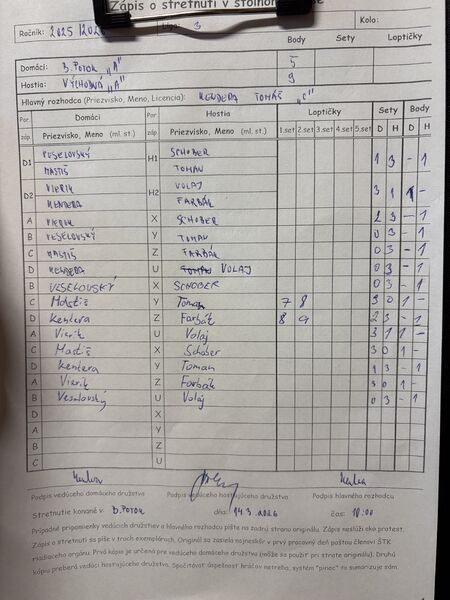 Zápis o stretnutí v stolnom
Ročník: 2025/2026 Liga: 3 Kolo:
Body Sety Loptičky
Domáci: B. POTOK „A" 5
Hostia: VÝCHODNÁ „A" 9
Hlavný rozhodca (Priezvisko, Meno, Licencia): KENDERA TOMÁŠ „C"
Por. Domáci Por. Hostia Loptičky Sety Body
záp. Priezvisko, Meno (ml. st.) záp. Priezvisko, Meno (ml. st.) 1.set 2.set 3.set 4.set 5.set D H D H
D1 VESELOVSKÝ H1 SCHOBER 1 3 - 1
MASTIŠ TOMAN
D2 VIERIK H2 VOLAJ 3 1 1 -
KENDERA FARBÁK
A VIERIK X SCHOBER 2 3 - 1
B VESELOVSKÝ Y TOMAN 0 3 - 1
C MASTIŠ Z FARBÁK 0 3 - 1
D KENDERA U TOMAN VOLAJ 0 3 - 1
B VESELOVSKÝ X SCHOBER 0 3 - 1
C Mastiš Y Toman 7 8 3 0 1 -
D Kentera Z Farbák 8 9 2 3 - 1
A Vierik U Volaj 3 1 1 -
C Mastiš X Schober 3 0 1 -
D Kentera Y Toman 1 3 - 1
A Vierik Z Farbák 3 0 1 -
B Veselovský U Volaj 0 3 - 1
D X
A Y
B Z
C U
Podpis vedúceho domáceho družstva Podpis vedúceho hosťujúceho družstva Podpis hlavného rozhodcu
Stretnutie konané v B. POTOK dňa: 14.3.2026 čas: 10:00
Prípadné pripomienky vedúcich družstiev a hlavného rozhodcu píšte na zadnú stranu originálu. Zápis neslúži ako protest.
Zápis o stretnutí sa píše v troch exemplároch. Originál sa zasiela najneskôr v prvý pracovný deň poštou členovi ŠTK
riadiaceho orgánu. Prvá kópia je určená pre vedúceho domáceho družstva (môže sa použiť pri strate originálu). Druhú
kópiu preberá vedúci hosťujúceho družstva. Spočítavať úspešnosť hráčov netreba, systém "pinec" to sumarizuje sám.